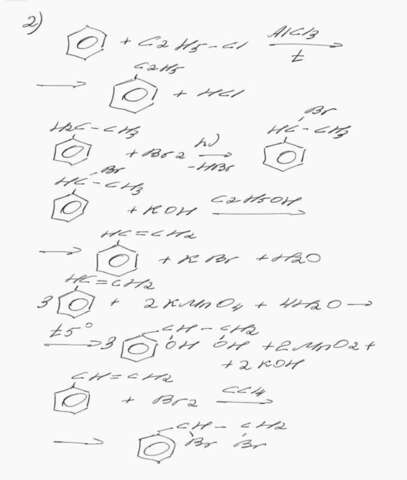 2)
+ C2H5-Cl AlCl3
t
C2H5
+ HCl
H2C-CH3 Br
HC-CH3
+ Br2 hν
-HBr
Br
HC-CH3
+ KOH C2H5OH
HC=CH2
+ KBr + H2O
HC=CH2
3 + 2KMnO4 + 4H2O →
t5° 3 CH-CH2
OH OH + 2MnO2 +
+ 2KOH
CH=CH2
+ Br2 CCl4
CH-CH2
Br Br